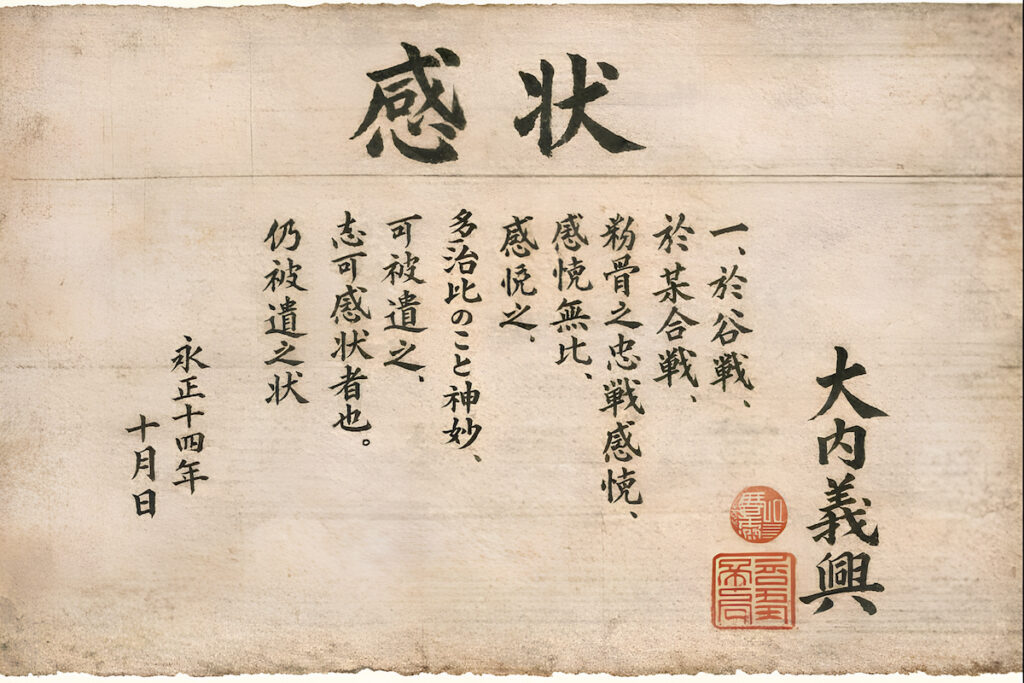 感状
大内義興
一、於谷戦、
於某合戦、
粉骨之忠戦感、
感無比、
感悦之、
多治比のこと神妙、
可被遺之、
志可感状者也。
仍被遺之状
永正十四年
十月日